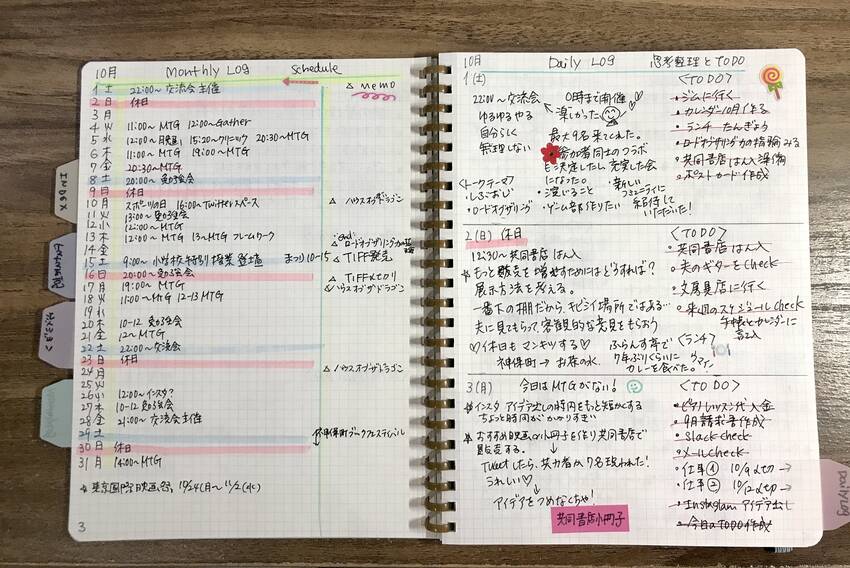 10月 Monthly Log Schedule
1 土 22:00〜交流会主催
△ メモ
2 日 休日
3 月
4 火 11:00〜MTG 12:00〜Gather
5 水 12:00〜 15:20〜クリニック 20:30〜MTG
6 木 11:00〜MTG 19:00〜MTG
7 金 20:30〜MTG
8 土 20:00〜 勉強会
9 日 休日
10 月 スポーツの日 16:00〜Twitterスペース
△ ハウスオブザドラゴン
11 火 13:00〜
12 水 12:00〜MTG
13 木 12:00〜MTG 13〜MTG フレームワーク
△ ロードオブザリング力の指輪
14 金
15 土 9:00〜小学校特別授業登壇 まつり10-15
△ TIFF発売
16 日 20:00〜
△ TIFFメモり
17 月 19:00〜MTG
△ ハウスオブザドラゴン
18 火 11:00〜MTG 12-13 MTG
19 水
20 木 10-12
21 金 12〜MTG
22 土 22:00〜交流会
23 日 休日
△ ハウスオブザドラゴン
24 月
25 火
26 水 12:00〜インスタ?
27 木 10-12
28 金 21:00〜交流会主催
29 土
神保町ブックフェスティバル
30 日 休日
31 月 14:00〜MTG
※東京国際映画祭 10/24(月)〜11/2(水)
3
INDEX
10月 Daily Log 思考整理とTODO
1(土)
22:00〜交流会
ゆるゆるやる
自分らしく
無理しない
0時まで開催
楽しかった
最大9名来てくれた。
参加者同士のコラボ
も決定したし、充実した会
になった。
<トークテーマ>
・ロードオブザリング
・ゲーム部作りたい
・新しい
コミュニティに
招待して
いただいた!
<TODO>
・ジムに行く
・カレンダー10月作る
・ランチ たんぎょう
・ロードオブザリング力の指輪みる
・共同書店はん入準備
・ポストカード作成
2(日) 休日
12:30〜共同書店はん入
※もっと販売を増やすためにはどうすれば?
展示方法を考える。
一番下の棚だから、キビシイ場所ではある…
夫に見てもらって、客観的な意見をもらおう
♡休日もマンキツする♡
神保町→お茶の水
<ランチ>
ふらんす亭で
7年ぶりくらいに
カレーを食べた。
ウマイ!
<TODO>
・共同書店はん入
・夫のギターをcheck
・文房具店に行く
・来週のスケジュールcheck
手帳とカレンダーに
書込
3(月) 今日はMTGがない!
※インスタ アイデア出しの時間をもっと短かくする
ちょっと時間がかかりすぎ
※おすすめ映画の小冊子を作り共同書店で
販売する。
Tweetしたら、協力者が7名現われた!
うれしい♡
アイデアをつめなくちゃ!
共同書店小冊子
<TODO>
・ピアノレッスン代入金
・9月請求書作成
・slack check
・メールcheck
・仕事① 10/9〆切→
・仕事② 10/12〆切→
・Instagramアイデア出し
・今日のTODO作成
DAILY LOG